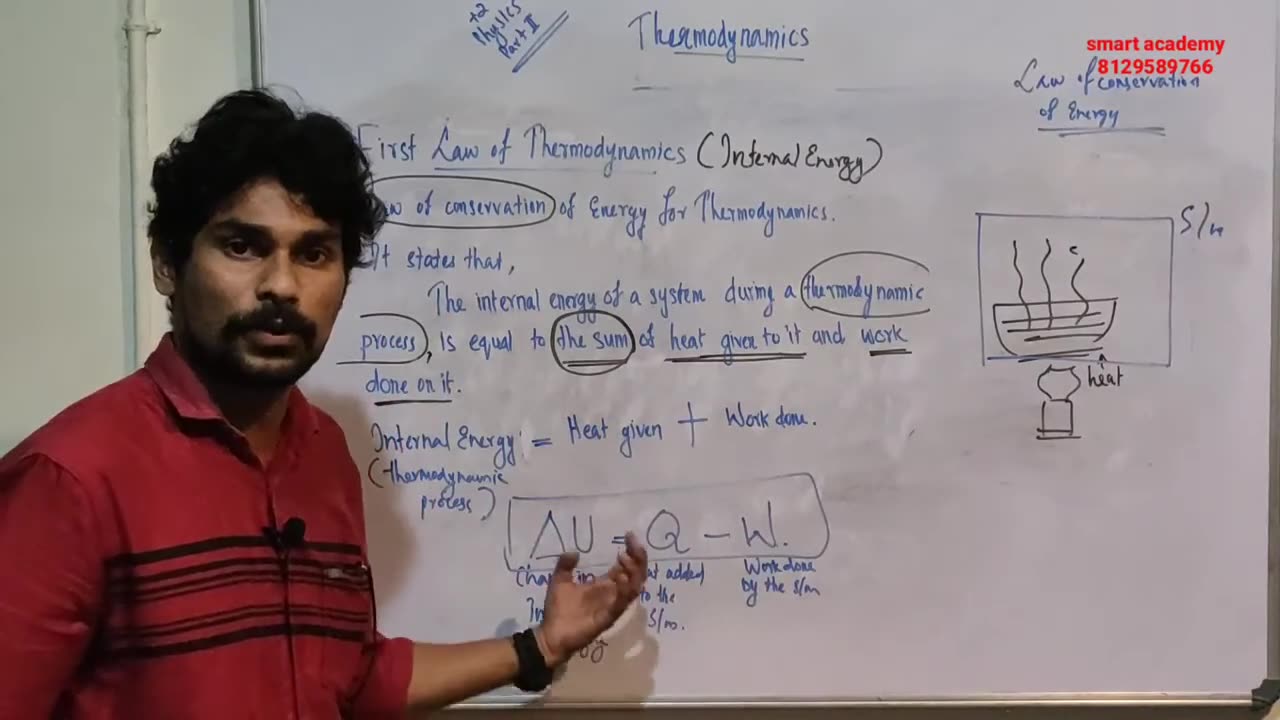 +2
Physics
Part II
Thermodynamics
smart academy
8129589766
Law of conservation
of Energy
First Law of Thermodynamics (Internal Energy)
of conservation of Energy for Thermodynamics.
It states that,
The internal energy of a system during a thermodynamic
process, is equal to the sum of heat given to it and work
done on it.
Internal Energy = Heat given + Work done.
(thermodynamic
process)
ΔU = Q - W.
added
to the
S/m.
Work done
by the s/m
S/m
heat